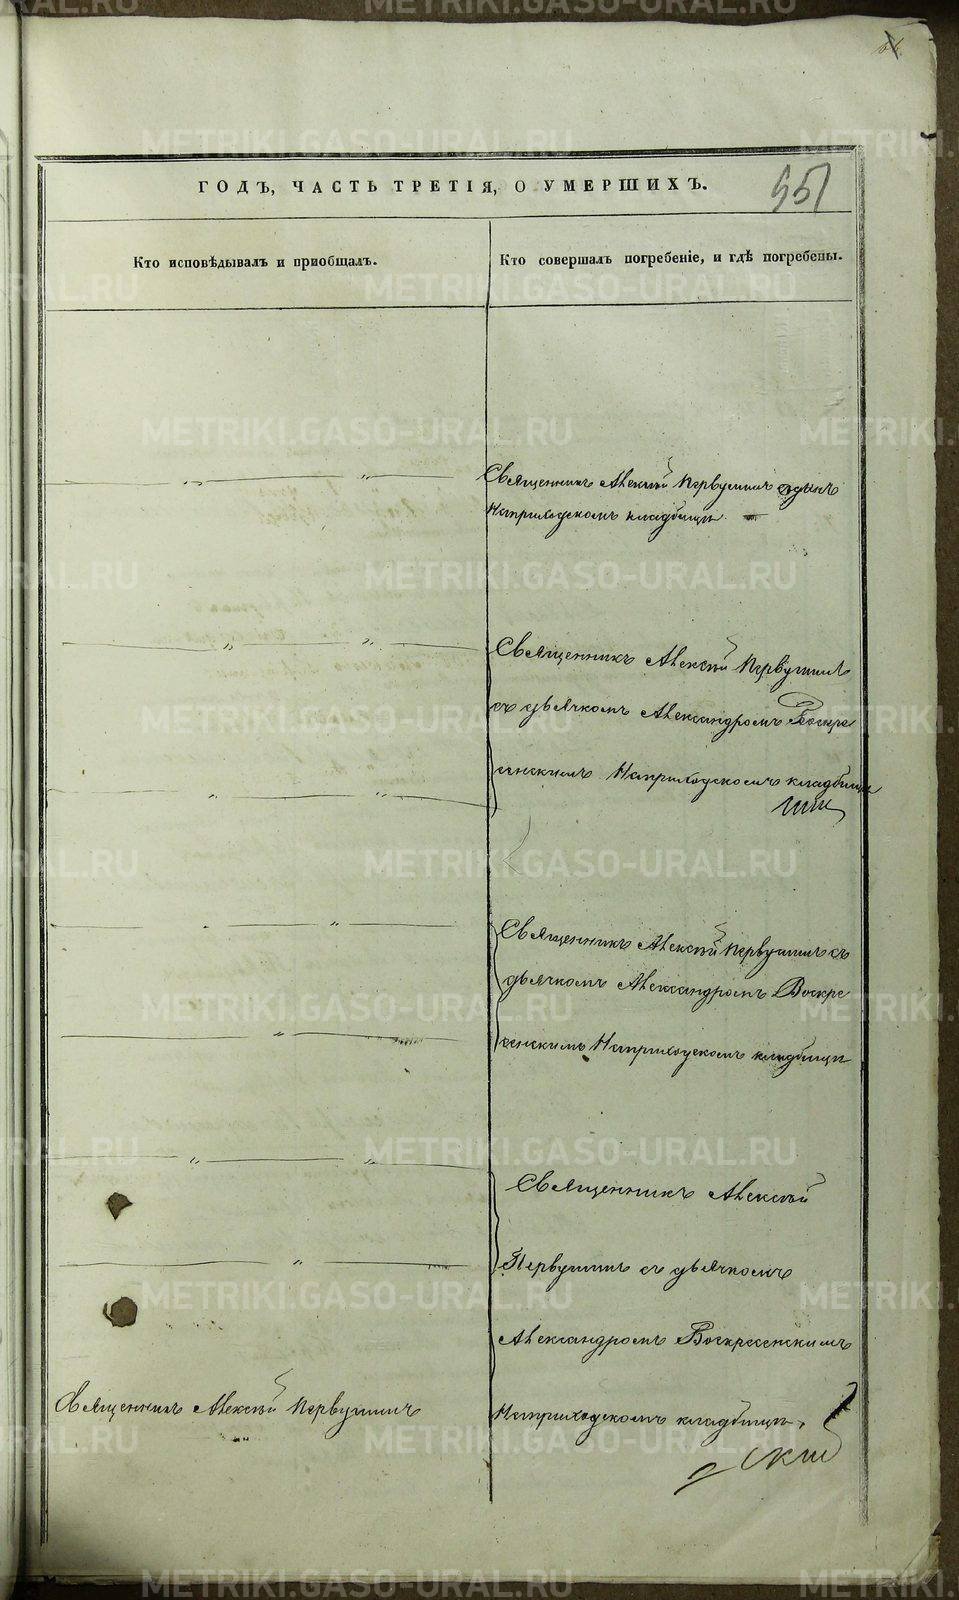 ГОДЪ, ЧАСТЬ ТРЕТІЯ, О УМЕРШИХЪ.
Кто исповѣдывалъ и пріобщалъ.
Кто совершалъ погребеніе, и гдѣ погребены.
Священникъ Алексѣй Первушинъ одинъ
На приходскомъ кладбищѣ
Священникъ Алексѣй Первушинъ
съ дьячкомъ Александромъ Воскре
сенскимъ На приходскомъ кладбищѣ
Священникъ Алексѣй Первушинъ съ
дьячкомъ Александромъ Воскре
сенскимъ На приходскомъ кладбищѣ
Священникъ Алексѣй
Первушинъ съ дьячкомъ
Александромъ Воскресенскимъ
Священникъ Алексѣй Первушинъ
На приходскомъ кладбищѣ.
METRIKI.GASO-URAL.RU